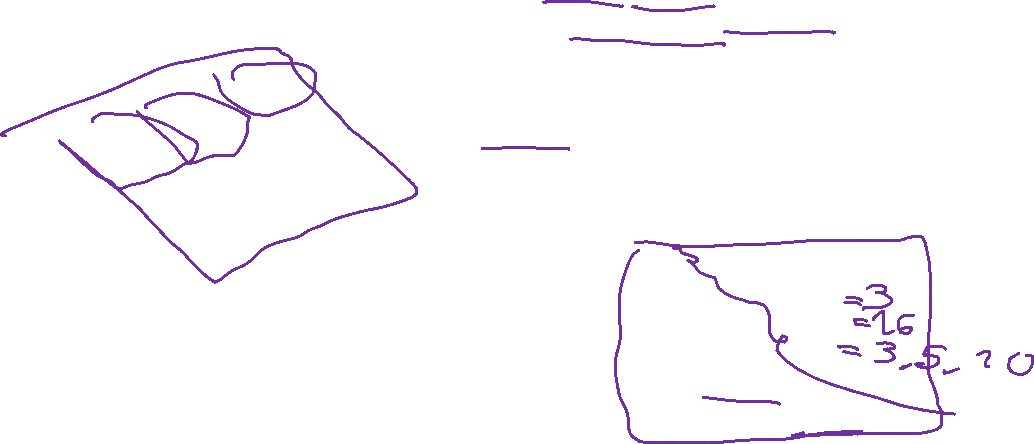 =3
=16
=3,5,10